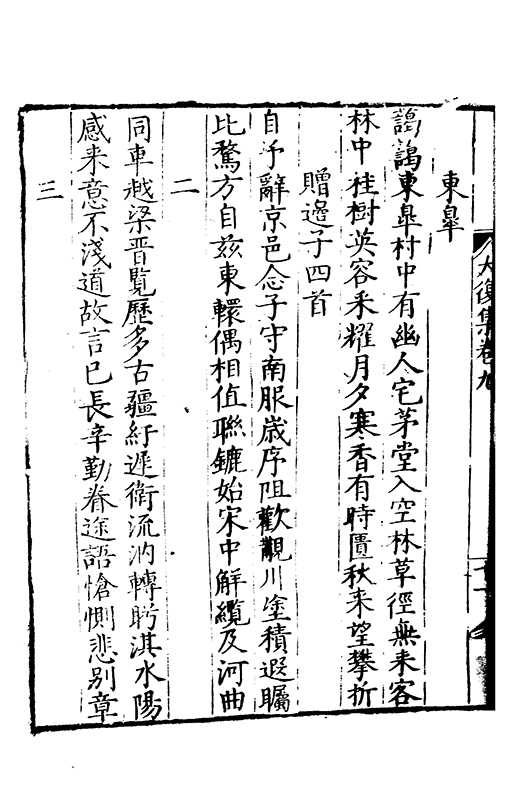 大復集卷九
東臯
藹藹東臯村中有幽人宅茅堂入空林草徑無來客
林中桂樹英容采耀月夕寒香有時匱秋来望攀折
贈邉子四首
自予辭京邑念子守南服歲序阻歡觀川塗積遐矚
比騖方自兹東轅偶相值聯鑣始宋中解纜及河曲
二
同車越梁晋覧歷多古疆紆遲衛流汭轉眄淇水陽
感来意不淺道故言已長辛勤眷途語愴惻悲别章
三